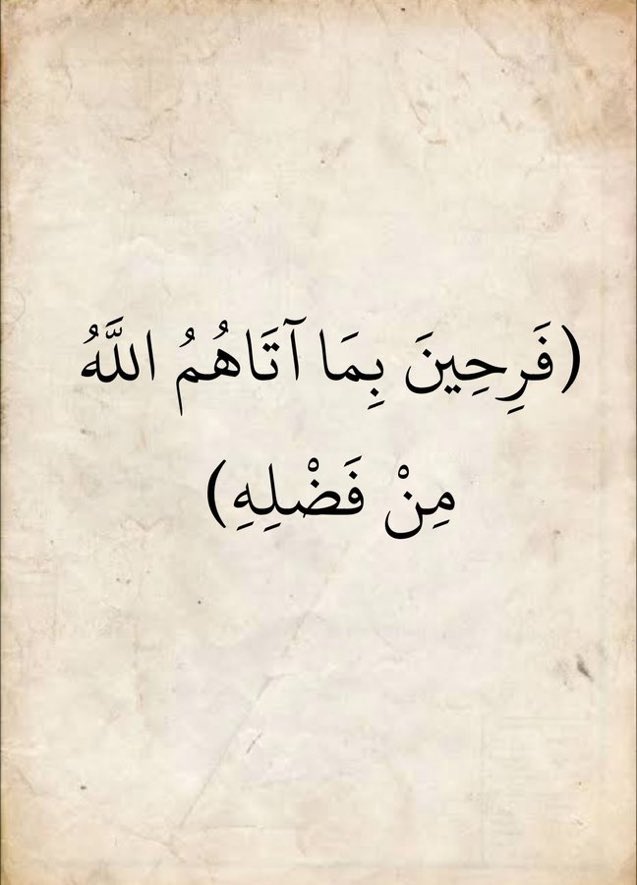 (فَرِحِينَ بِمَا آتَاهُمُ اللَّهُ
مِنْ فَضْلِهِ)